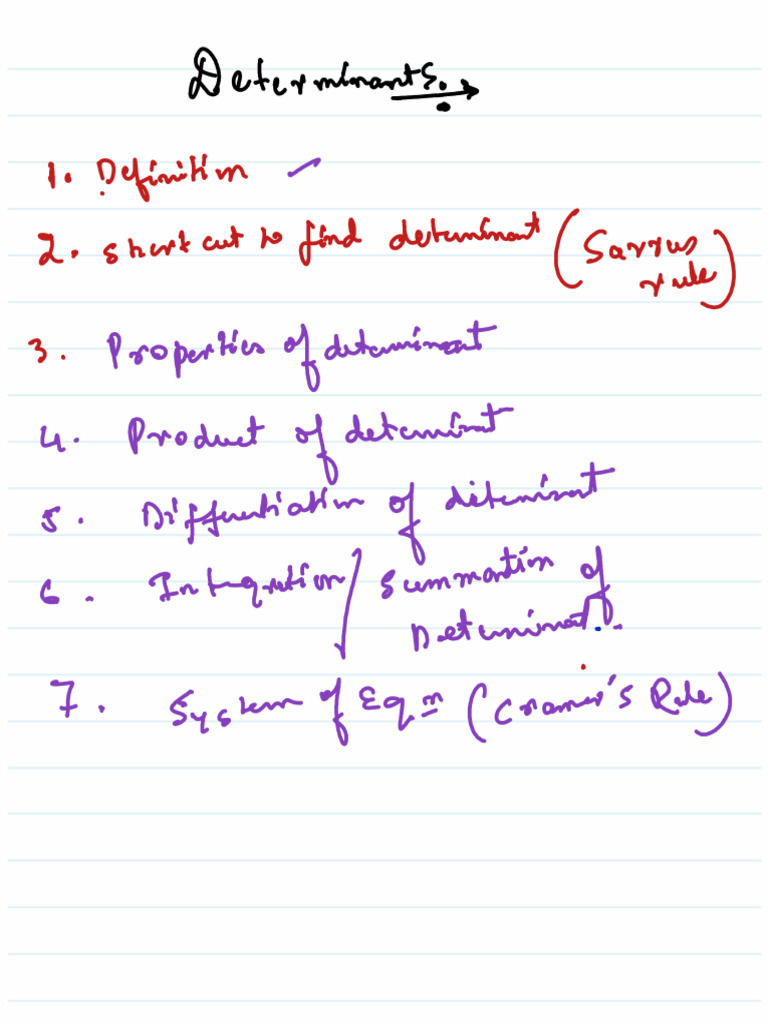 Determinants.
1. Definition
2. short cut to find determinant (Sarrus
rule)
3. Properties of determinant
4. Product of determinant
5. Differentiation of determinant
6. Integration / Summation of
Determinant.
7. System of Eqn (Cramer's Rule)